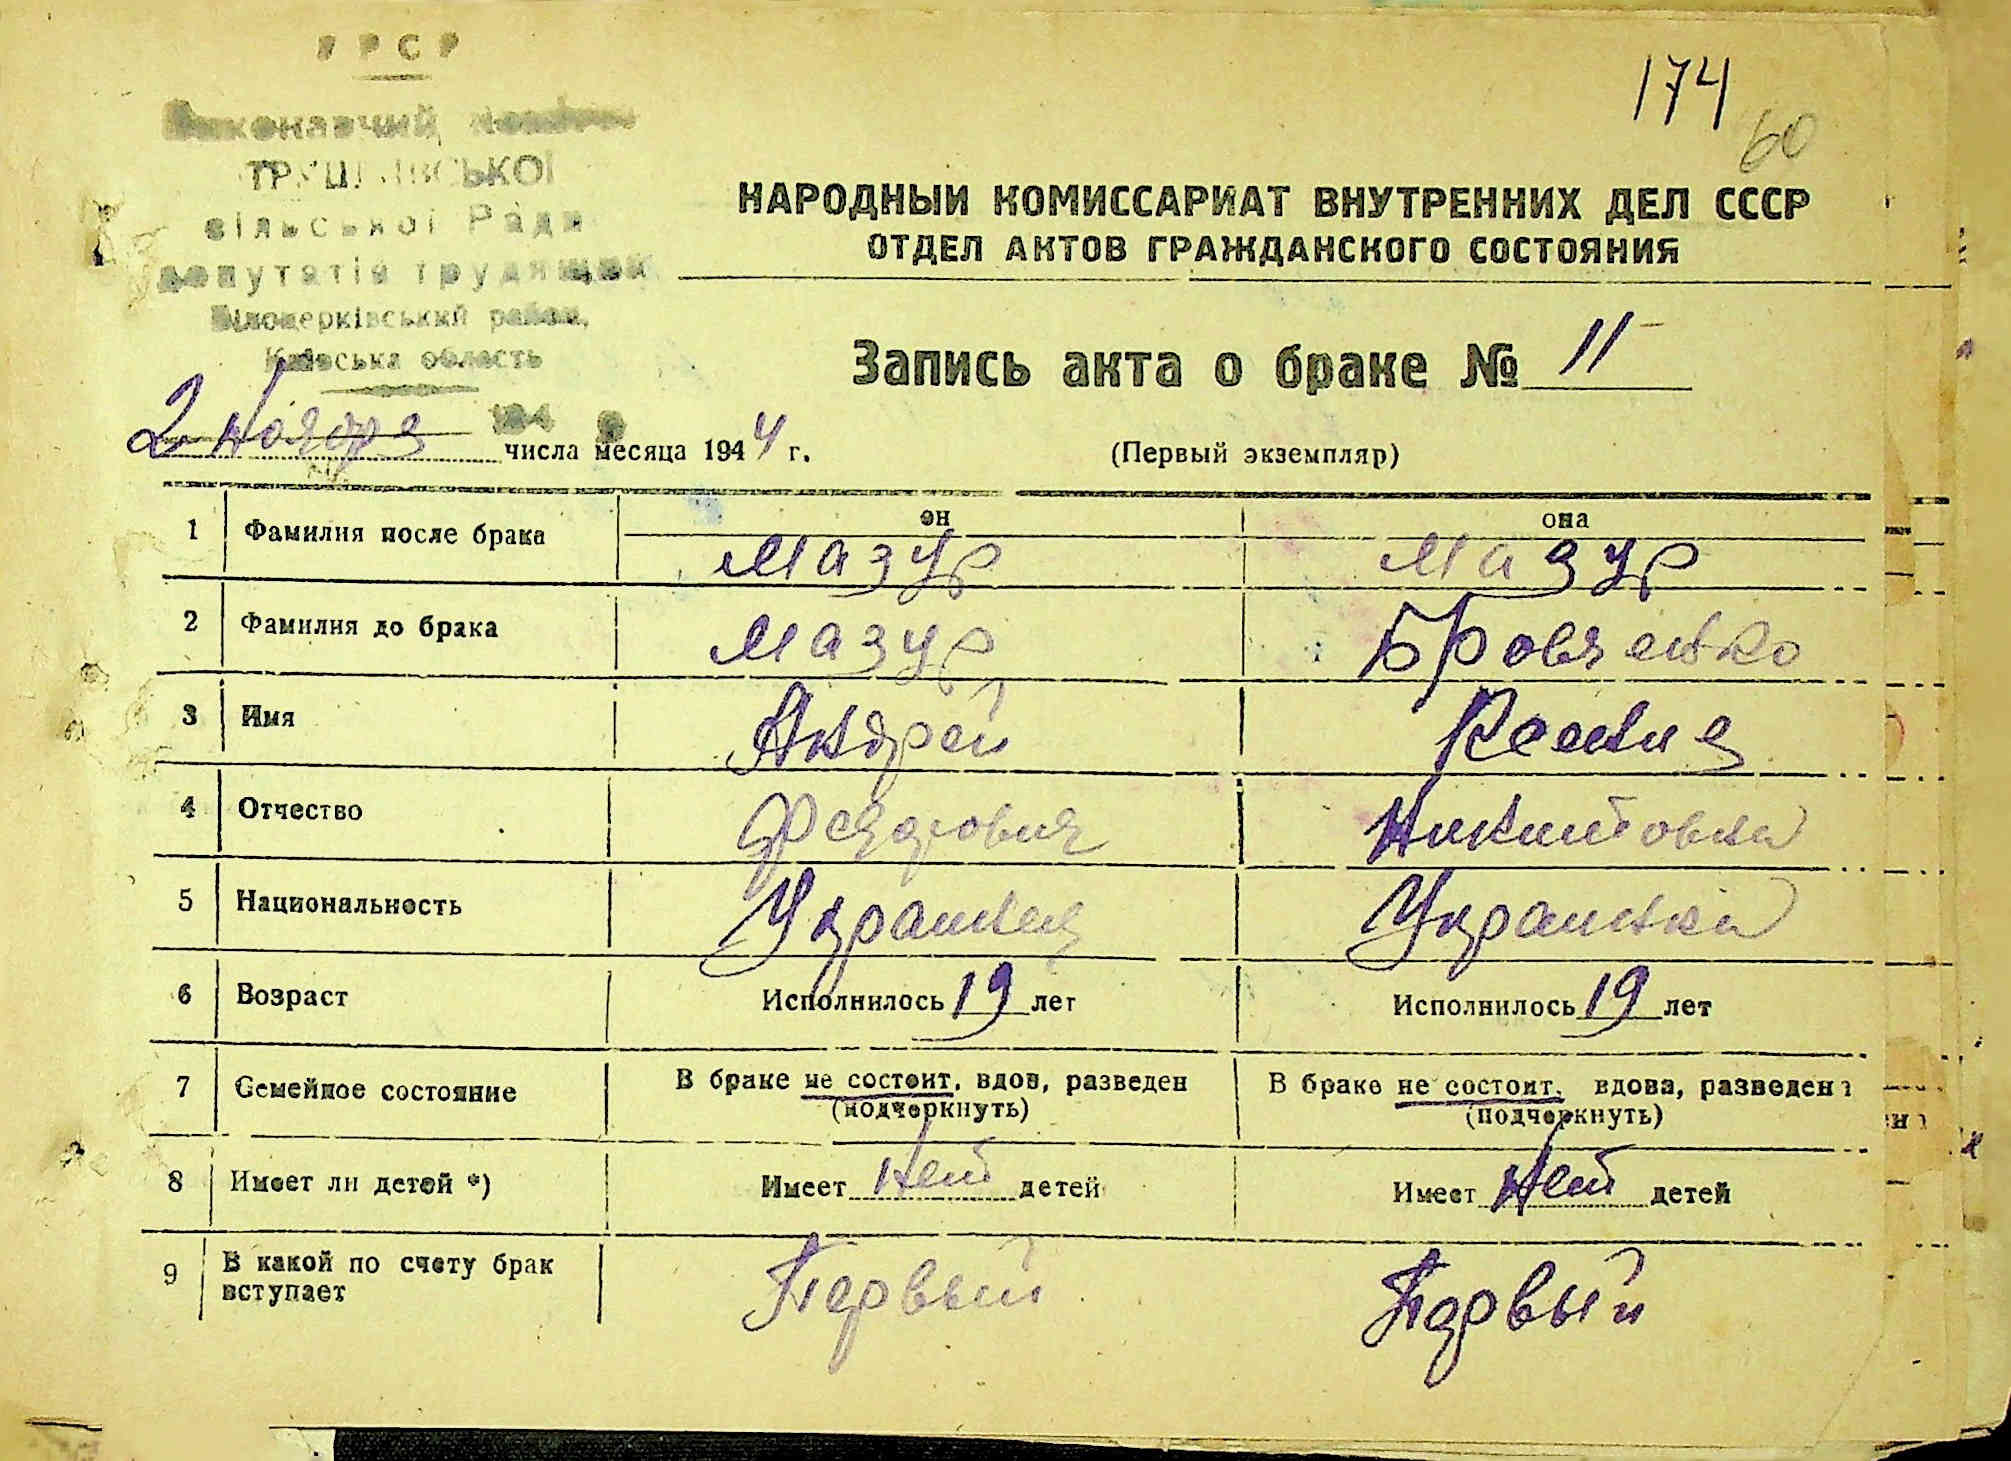 УРСР
174
60
Виконавчий комітет
ТРУШКІВСЬКОЇ
сільської Ради
депутатів трудящих
Білоцерківський район,
Київська область
НАРОДНЫЙ КОМИССАРИАТ ВНУТРЕННИХ ДЕЛ СССР
ОТДЕЛ АКТОВ ГРАЖДАНСКОГО СОСТОЯНИЯ
Запись акта о браке № 11
2 Ноября числа месяца 1944 г.
(Первый экземпляр)
он она
1 Фамилия после брака Мазур Мазур
2 Фамилия до брака Мазур Бровченко
3 Имя Андрей Ксения
4 Отчество Федорович Никитовна
5 Национальность Украинец Украинка
6 Возраст Исполнилось 19 лет Исполнилось 19 лет
7 Семейное состояние В браке не состоит, вдов, разведен В браке не состоит, вдова, разведена
(подчеркнуть) (подчеркнуть)
8 Имеет ли детей *) Имеет Нет детей Имеет Нет детей
9 В какой по счету брак
вступает Первый Первый